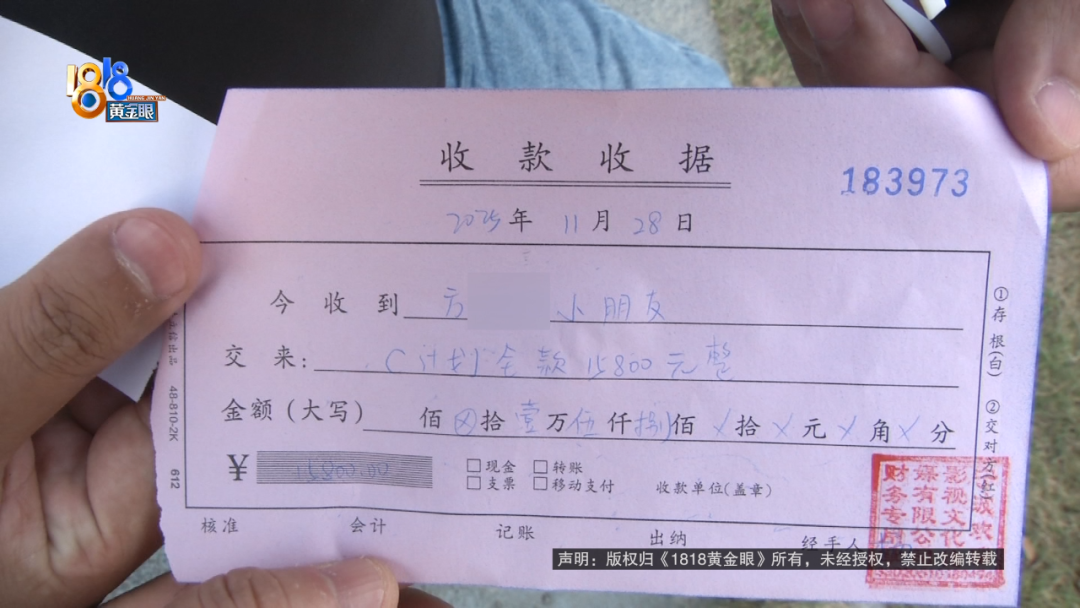 1818
黄金眼
收款收据
183973
2025年11月28日
今收到 方 小朋友
交来: C计划全款15800元整
金额(大写) 佰⊗拾壹万伍仟捌佰╳拾╳元╳角╳分
¥ 15800.00
□现金 □转账
□支票 □移动支付
收款单位(盖章)
核准 会计 记账 出纳 经手人
①存根(白) ②交对方(红)
48-810-2K 612
影视文化
有限公
财务专
声明:版权归《1818黄金眼》所有,未经授权,禁止改编转载